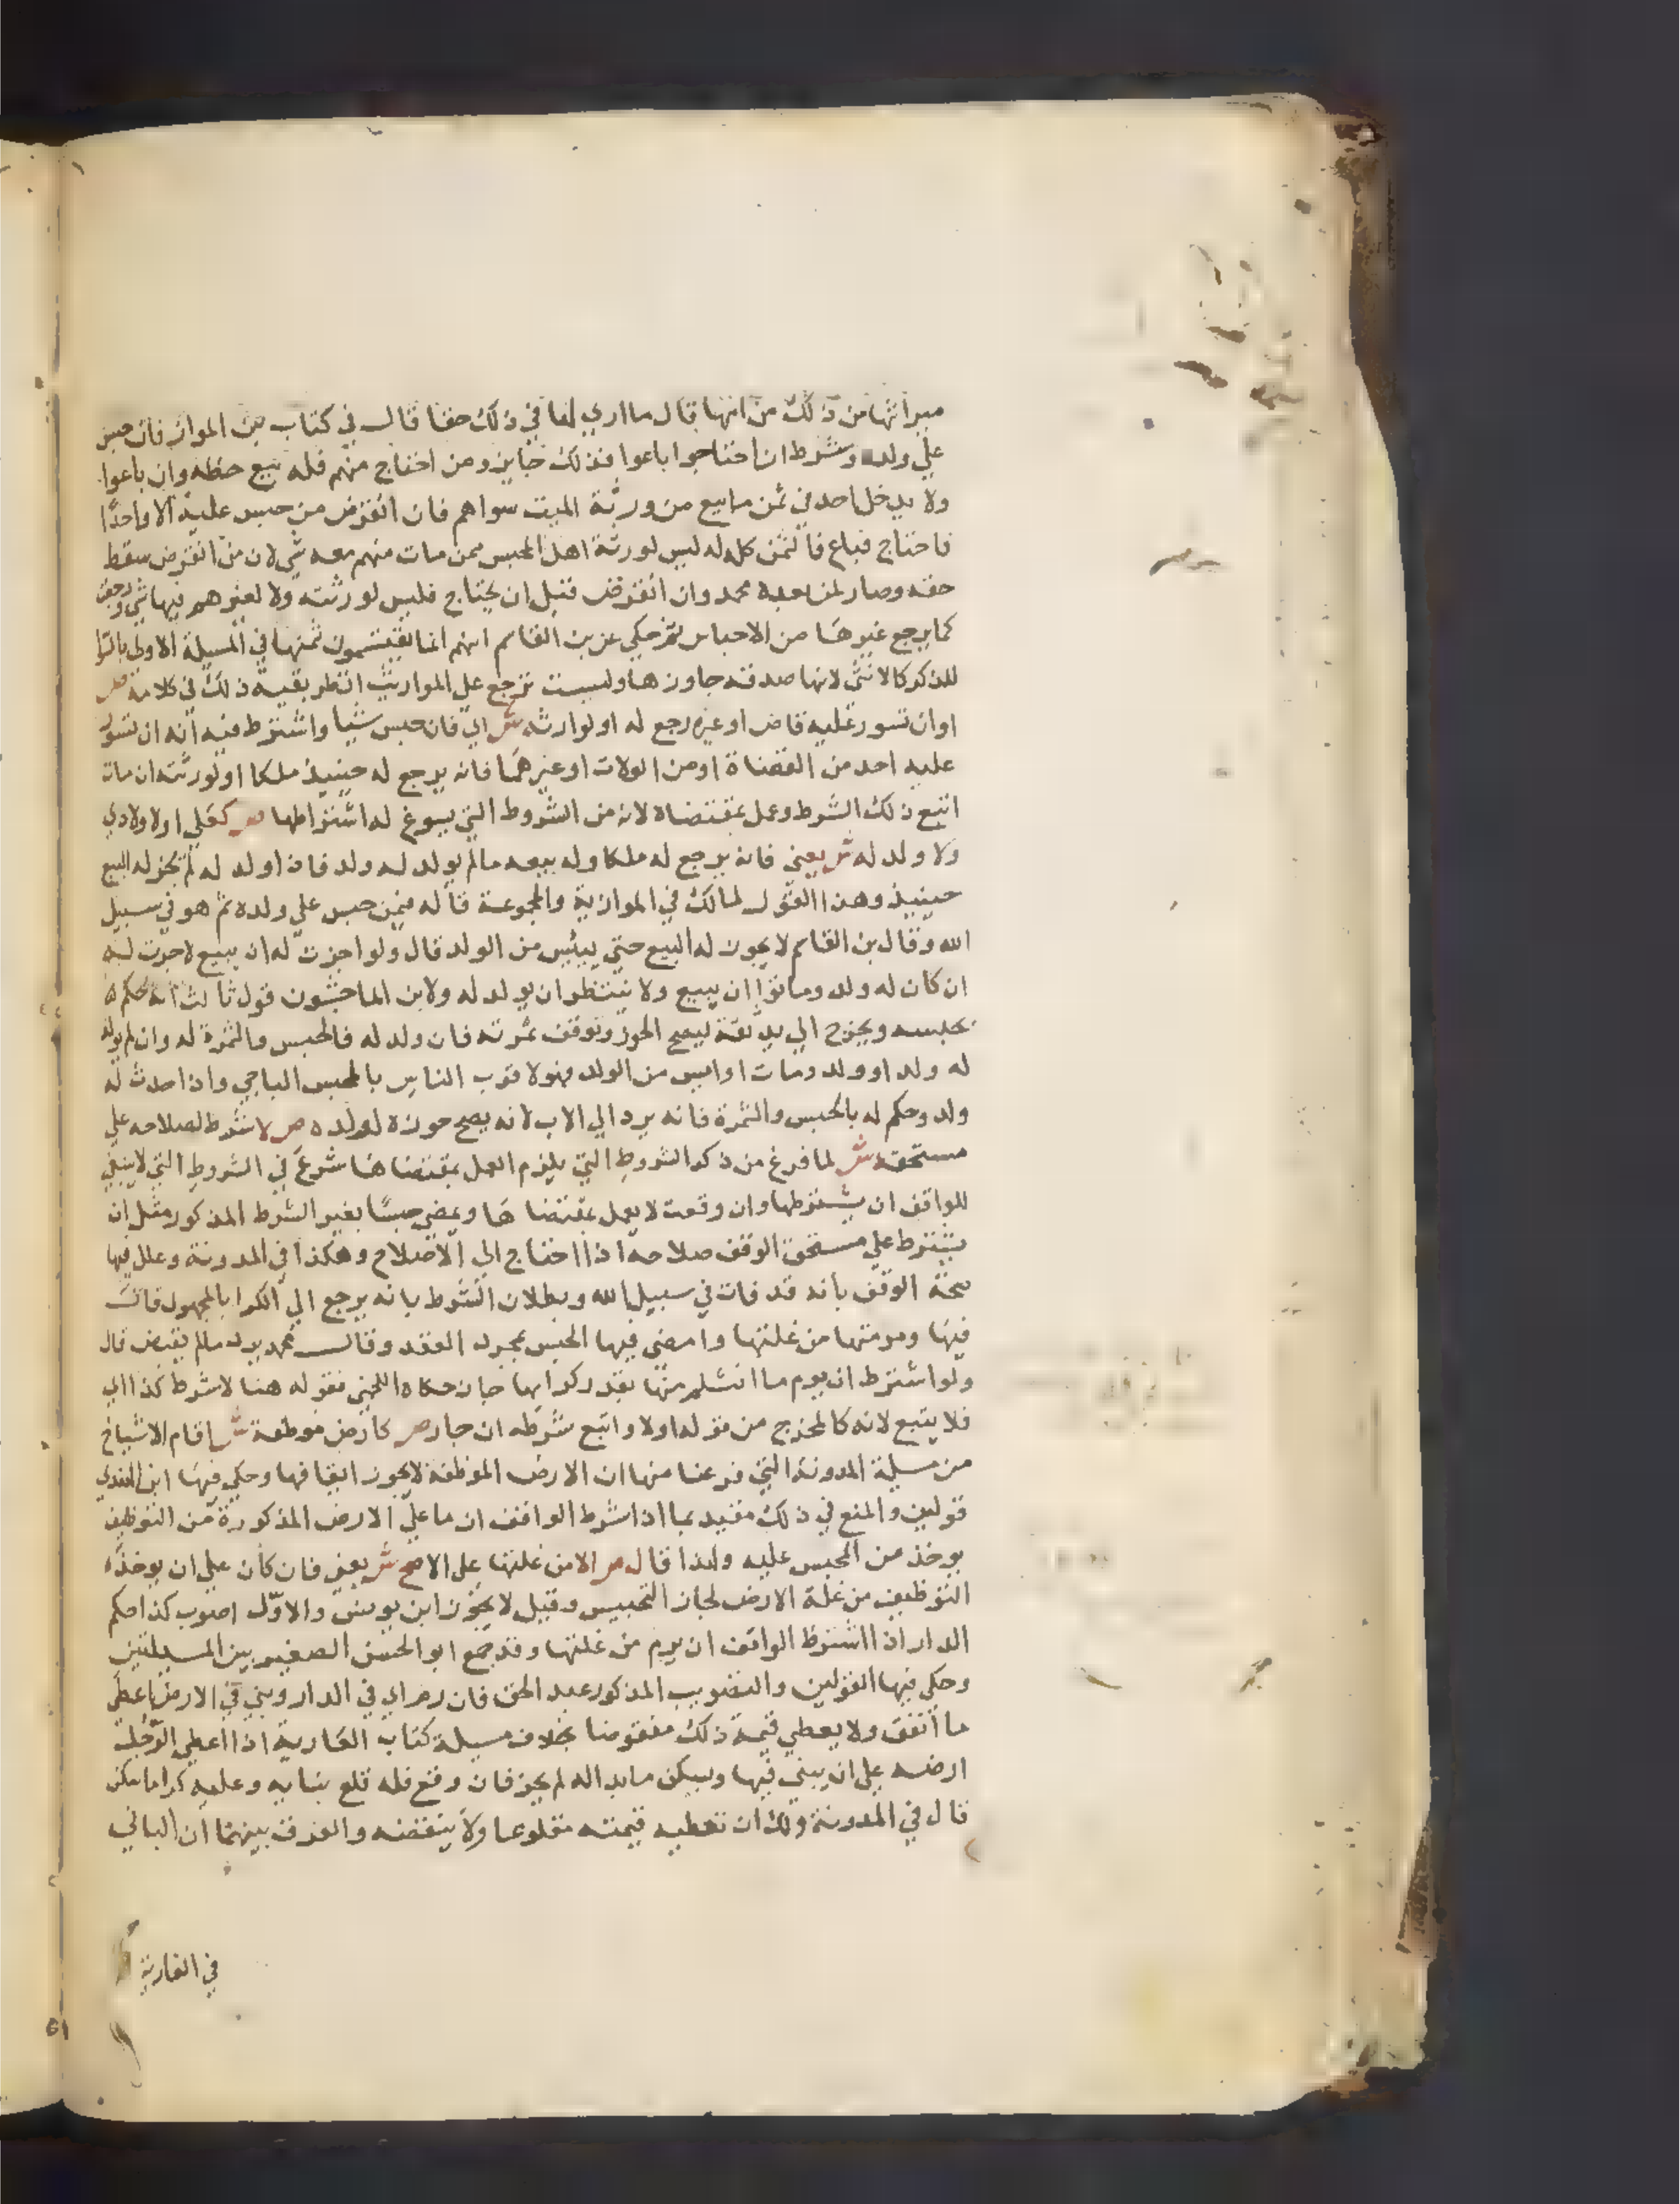 ميراثها من ذلك من امها قال ما اري لها في ذلك حقا قال في كتاب بن المواز فان حبس
علي ولده وشرط ان احتاجوا باعوا فذلك جايز ومن احتاج منهم فله بيع حظه وان باعوا
ولا يدخل احد في ثمن ما بيع من ورثة الميت سواهم فان انقرض من حبس عليه الا واحدا
فاحتاج فباع فالثمن كله له ليس لورثة اهل الحبس ممن مات منهم معه شي لان من انقرض سقط
حقه وصار لمن بعده محمد وان انقرض قبل ان يحتاج فليس لورثته ولا لغيرهم فيها شي وترجع
كما يرجع غيرها من الاحباس ثم حكي عن بن القاسم انهم انما يقتسمون ثمنها في المسيلة الاولي بالسوا
للذكر كالانثي لانها صدقة جاوزها وليست ترجع علي المواريث انظر بقية ذلك في كلامه ص
اوان تسور عليه قاض او غيره رجع له او لوارثه ش اي فان حبس شيا واشترط فيه انه ان تسور
عليه احد من القضاة او من الولات او غيرهما فانه يرجع له حينيذ ملكا او لورثته ان مات
اتبع ذلك الشرط وعمل بمقتضاه لانه من الشروط التي يسوغ له اشتراطها ص كعلي اولادي
ولا ولد له ش يعني فانه يرجع له ملكا وله بيعه ما لم يولد له ولد فاذا ولد له لم يجز له البيع
حينيذ وهذا القول لمالك في الموازية والمجموعة قاله فيمن حبس علي ولده ثم هو في سبيل
الله وقال بن القاسم لا يجوز له البيع حتي ييئس من الولد قال ولو اجزت له ان يبيع لاجزت له
ان كان له ولد وماتوا ان يبيع ولا ينتظر ان يولد له ولابن الماجشون قول ثالث انه يحكم
بحبسه ويخرج الي يد ثقة ليصح الحوز وتوقف ثمرته فان ولد له فالحبس والثمرة له وان لم يولد
له ولد او ولد ومات او ايس من الولد فهو لاقرب الناس بالحبس الباجي واذا حدث له
ولد وحكم له بالحبس والثمرة فانه يرد الي الاب لانه يصح حوزه لولده ص لا شرط اصلاحه علي
مستحقه ش لما فرغ من ذكر الشروط التي يلزم العمل بمقتضاها شرع في الشروط التي لا ينبغي
للواقف ان يشترطها وان وقعت لا يعمل بمقتضاها ويمضي حبسا بغير الشرط المذكور مثل ان
يشترط علي مستحق الوقف صلاحه اذا احتاج الي الاصلاح وهكذا في المدونة وعلل فيها
صحة الوقف بانه قد فات في سبيل الله وبطلان الشرط بانه يرجع الي الكرا بالمجهول قال
فيها ومرمتها من غلتها وامضي فيها الحبس بمجرد العقد وقال محمد يرد ما لم يقبض قال
ولو اشترط ان يرم ما انثلم منها بقدر كرايها جاز حكاه اللخمي فقوله هنا لا شرط كذا الي
فلا يتبع لانه كالمخرج من قوله اولا واتبع شرطه ان جاز ص كارض موظفة ش اقام الاشياخ
من مسيلة المدونة التي فرغنا منها ان الارض الموظفة لا يجوز ايقافها وحكي فيها ابن الهندي
قولين والمنع في ذلك مقيد بما اذا شرط الواقف ان ما علي الارض المذكورة من التوظيف
يوخذ من المحبس عليه ولذا قال ص الا من غلتها علي الاصح ش يعني فان كان علي ان يوخذ
التوظيف من غلة الارض لجاز التحبيس وقيل لا يجوز ابن يونس والاول اصوب كذا حكم
الدار اذا اشترط الواقف ان يرم من غلتها وقد جمع ابو الحسن الصغير بين المسيلتين
وحكي فيها القولين والتصويب المذكور عبد الحق فان رم اي في الدار وبني في الارض اعطي
ما انفق ولا يعطي قيمة ذلك منقوضا بخلاف مسيلة كتاب العارية اذا اعطي الرجل
ارضه علي ان يبني فيها ويسكن ما بدا له لم يجز فان وقع فله قلع بنايه وعليه كرا ما سكن
قال في المدونة ولك ان تعطيه قيمته مقلوعا ولا ينقضه والفرق بينهما ان الباني
في العارية